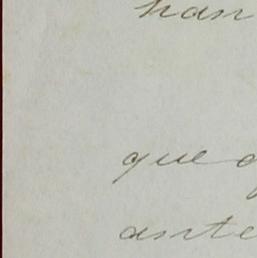 han
que
ante